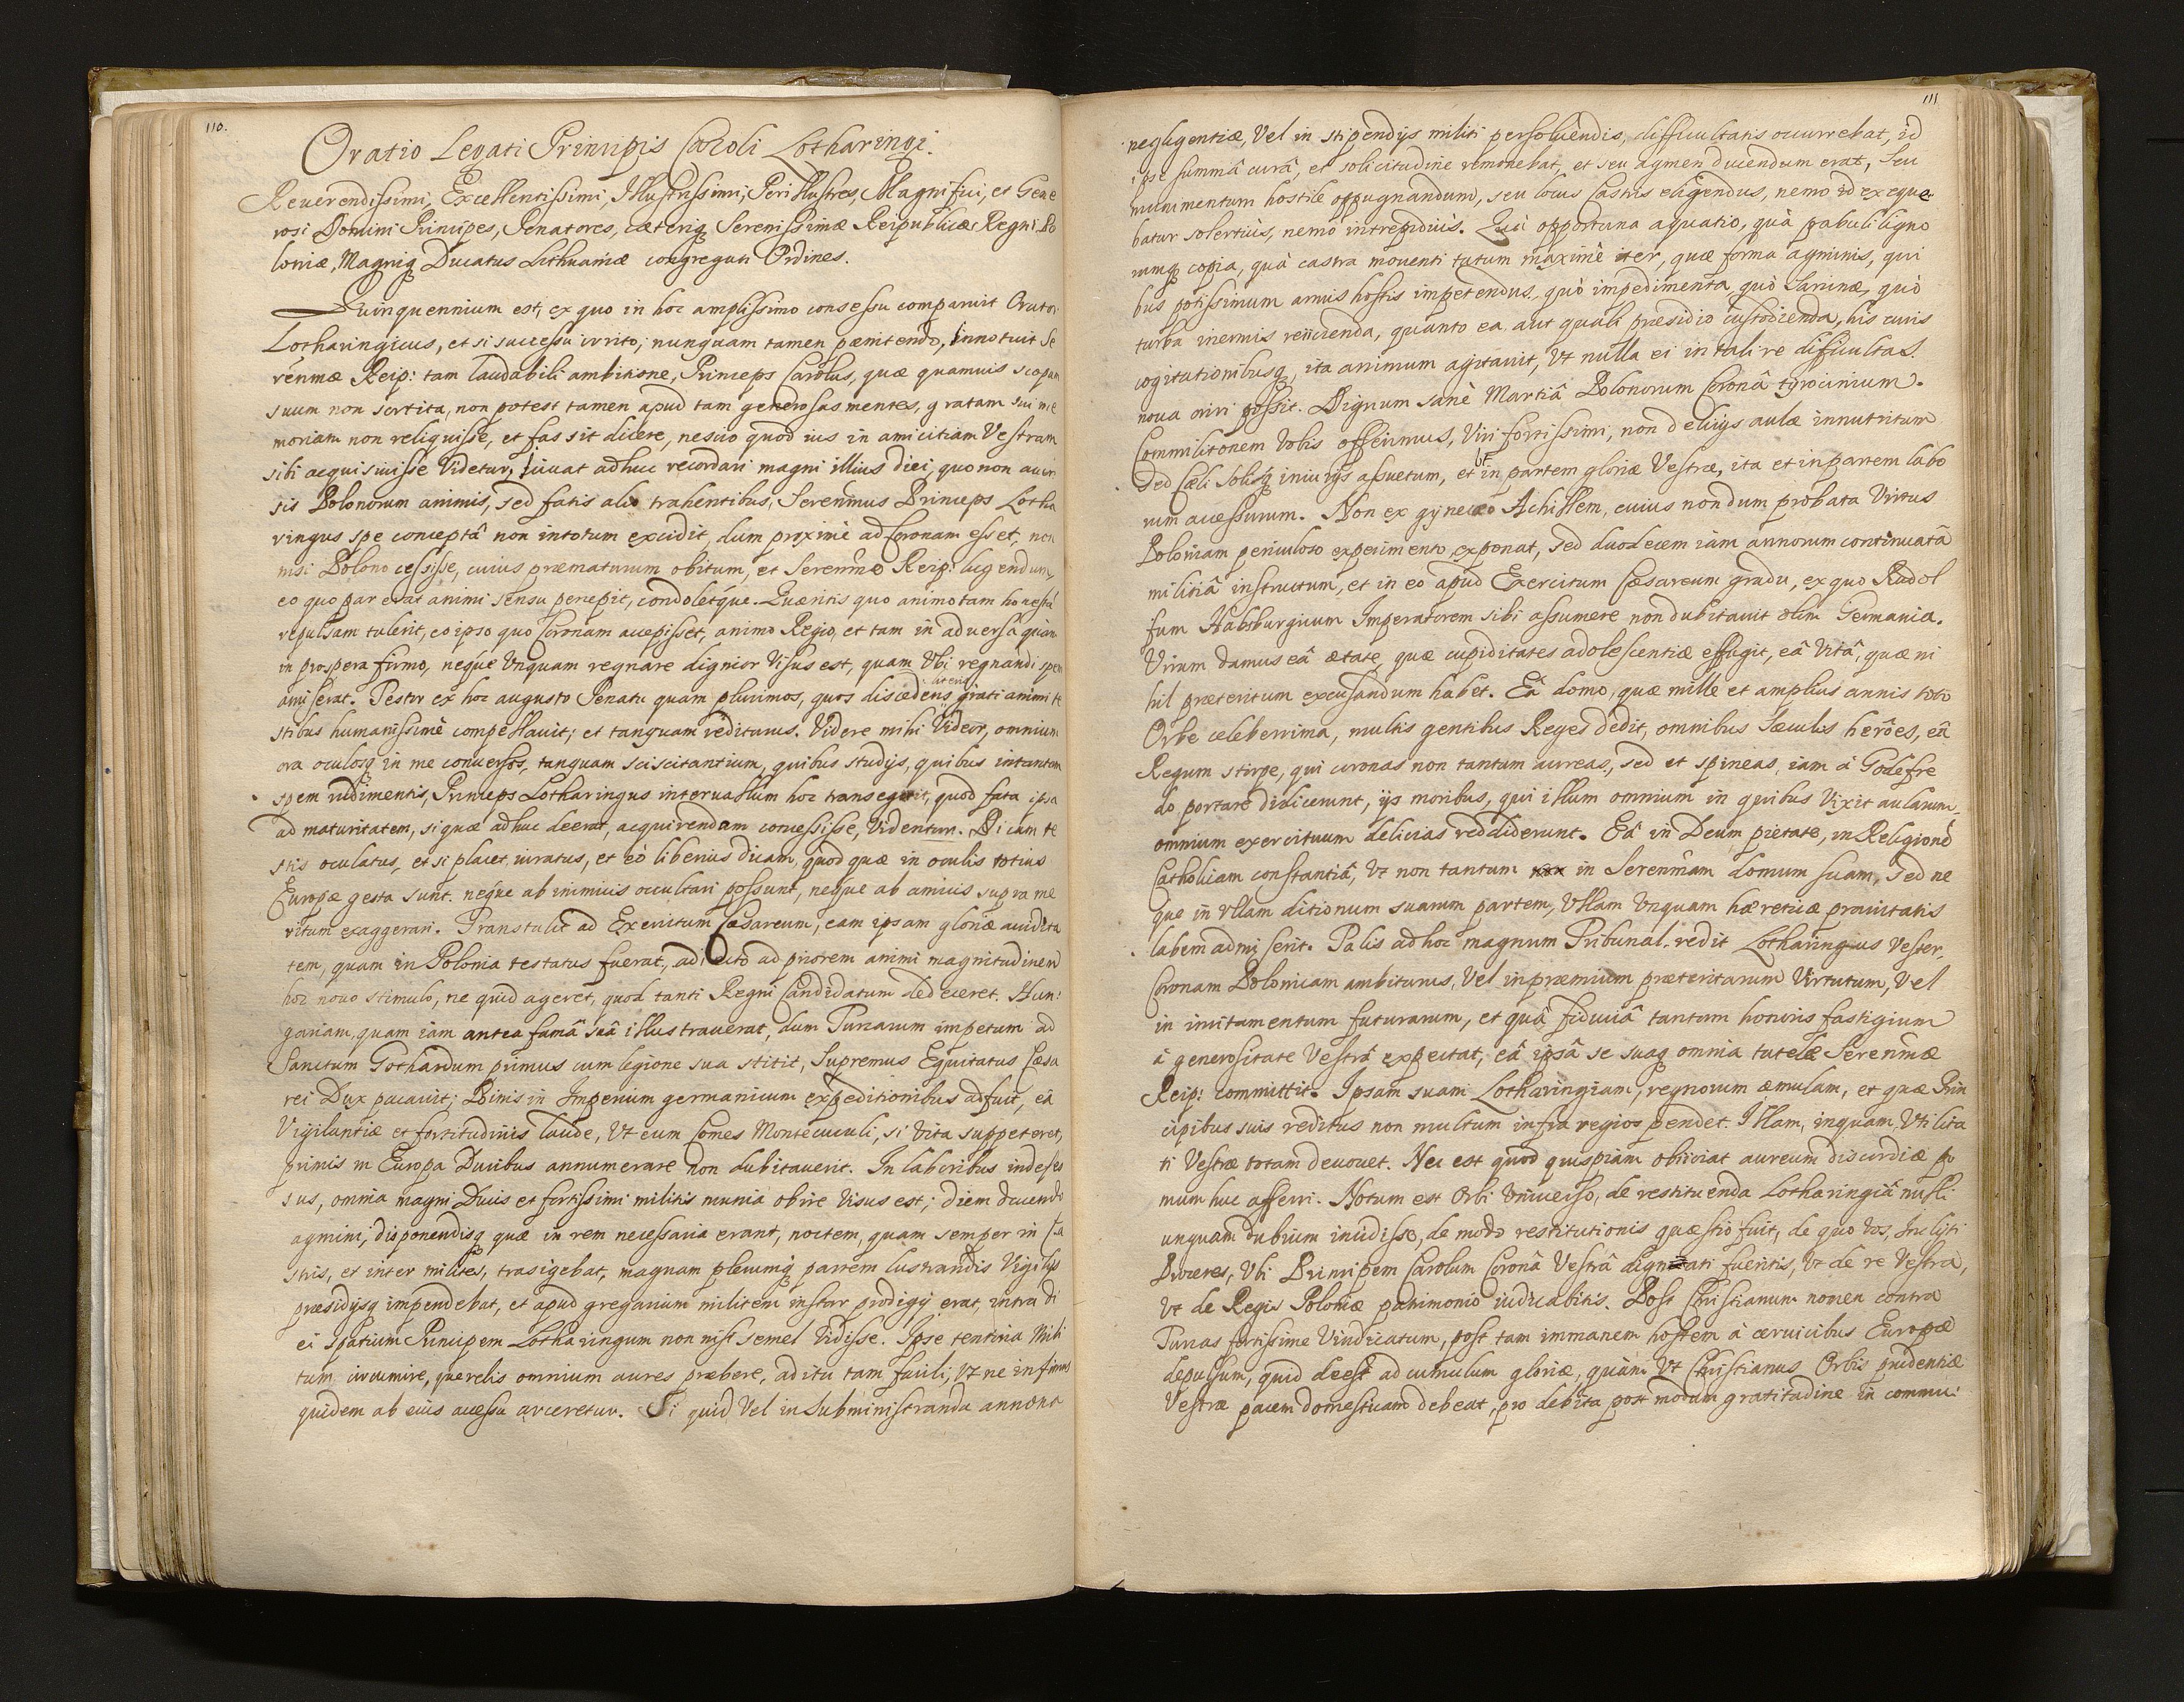 110.
Oratio Legati Principis Caroli Lotharingi.
Reuerendissimi, Excellentissimi, Illustrissimi, Perillustres, Magnifici, et Gene
rosi Domini Principes, Senatores, cæteriq Serenissimæ Reipublicæ Regni Po
loniæ, Magniq Ducatus Lithuaniæ congregati Ordines.
Quinquennium est, ex quo in hoc amplissimo consessu comparuit Orator
Lotharingicus, et si successu irrito, nunquam tamen pœnitendo, innotuit Se
renmæ Reip: tam laudabili ambitione, Princeps Carolus, quæ quamuis scopum
suum non sortita, non potest tamen apud tam generosas mentes, gratam sui me
moriam non reliquisse, et fas sit dicere, nescio quod ius in amicitiam Vestram
sibi acquisiuisse Videtur, iuuat adhuc recordari magni illius diei, quo non auer
sis Polonorum animis, sed fatis alio trahentibus, Serenmus Princeps Lotha
ringus spe conceptâ non in totum excidit, dum proximè ad Coronam esset, non
nisi Polono cessisse, cuius præmaturum obitum, et Serenmæ Reip: lugendum,
eo quo par erat animi sensu percepit, condoletque. Quæritis quo animo tam honestā
repulsam tulerit, eo ipso quo Coronam accepisset, animo Regio, et tam in aduersa quam
in prospera firmo, neque Vnquam regnare dignior Visus est, quam Vbi regnandi spem
amiserat. Testor ex hoc augusto Senatu quam plurimos, quos discedens literis grati animi te
stibus humanissimè compellauit; et tanquam rediturus. Videre mihi Videor, omnium
ora oculosq in me conuersos, tanquam sciscitantium, quibus studijs, quibus in tantam
spem rudimentis, Princeps Lotharingus interuallum hoc transegerit, quod fata ipsa
ad maturitatem, si quæ adhuc deerat, acquirendam concessisse, Videntur. Dicam te
stis oculatus, et si placet, iuratus, et eò liberius dicam, quod quæ in oculis totius
Europæ gesta sunt. neque ab inimicis occultari possunt, neque ab amicis supra me
ritum exaggerari. Transtulit ad Exercitum Cæsareum, eam ipsam gloriæ auidita
tem, quam in Polonia testatus fuerat, adiecto ad priorem animi magnitudinem
hoc nouo stimulo, ne quid ageret, quod tanti Regni Candidatum dedeceret. Hun:
gariam, quam iam antea famâ suâ illustrauerat, dum Turcarum impetum ad
Sanctum Gothardum primus cum legione sua stitit, Supremus Equitatus Cæsa
rei Dux pacauit; Binis in Imperium germanicum expeditionibus adfuit, eâ
Vigilantiæ et fortitudinis laude, Vt eum Comes Montecuculi, si Vita suppeteret,
primis in Europa Ducibus annumerare non dubitauerit. In laboribus indefes
sus, omnia magni Ducis et fortissimi militis munia obire Visus est; diem ducendo
agmini, disponendisq quæ in rem necessaria erant, noctem, quam semper in Ca
stris, et inter milites, trasigebat, magnam plerumq partem lustrandis Vigilijs
præsidijsq impendebat, et apud gregarium militem instar prodigij erat, intra di
ei spatium Principem Lotharingum non nisi semel Vidisse. Ipse tentoria Mili
tum circumire, querelis omnium aures præbere, aditu tam facili, Vt ne infimus
quidem ab eius accessu arceretur. Si quid Vel in Subministranda annona
111
negligentiæ, Vel in stipendijs militi persoluendis, difficultatis occurrebat, id
ipse summâ curâ, et solicitudine remouebat, et seu agmen ducendum erat, Seu
munimentum hostile oppugnandum, seu locus Castris eligendus, nemo id exeque
batur solertiùs, nemo intrepidiùs. Quà opportuna aquatio, quà pabuli ligno
rumq copia, quà castra mouenti tutum maximè iter, quæ forma agminis, qui
bus potissimum armis hostis impetendus, quò impedimenta, quò Sarcinæ, quò
turba inermis reijcienda, quanto ea aut quali præsidio custodienda, his curis
cogitationibusq, ita animum agitauit, Vt nulla ei in tali re difficultas
noua oriri possit. Dignum sanè Martiâ Polonorum Coronâ tyrocinium.
Commilitonem Vobis offerimus, Viri fortissimi, non delicijs aulæ innutritum
Sed Cæli Solisq iniurijs assuetum, et Vt in partem gloriæ Vestræ, ita et in partem labo
rum accessurum. Non ex gynecæo Achillem, cuius nondum probata Virtus
Poloniam periculoso experimento exponat, sed duodecem iam annorum continuatâ
militiâ instructum, et in eo apud Exercitum Cæsareum gradu, ex quo Rudol
fum Habsburgicum Imperatorem sibi assumere non dubitauit olim Germania.
Virum damus eâ ætate, quæ cupiditates adolescentiæ effugit, eâ Vitâ, quæ ni
hil præteritum excusandum habet. Eâ domo, quæ mille et amplius annis toto
Orbe celeberrima, multis gentibus Reges dedit, omnibus Sæculis herôes, eâ
Regum stirpe, qui coronas non tantum aureas, sed et spineas, iam à Godefre
do portare didicerunt, ijs moribus, qui illum omnium in quibus Vixit aularum,
omnium exercituum delicias reddiderunt. Eâ in Deum pietate, in Religione
Catholicam constantiâ, Vt non tantum in Serenmam domum suam, sed ne
que in Vllam ditionum suarum partem, Vllam Vnquam hæreticæ prauitatis
labem admiserit. Talis ad hoc magnum Tribunal redit Lotharingius Vester,
Coronam Polonicam ambiturus, Vel in præmium præteritarum Virtutum, Vel
in inuitamentum futurarum, et quâ fiduciâ tantum honoris fastigium
à generositate Vestrâ expectat, eâ ipsâ se suaq omnia tutelæ Serenmæ
Reip: committit. Ipsam suam Lotharingiam, regnorum æmulam, et quæ Prin
cipibus suis reditus non multum infra regios pendet. Illam, inquam, Vtilita
ti Vestræ totam deuouet. Nec est quod quispiam obijciat aureum discordiæ po
mum huc afferri. Notum est Orbi Vniuerso, de restituenda Lotharingiâ nulli
unquam dubium incidisse, de modo restitutionis quæstio fuit, de quo Vos, Incliti
Proceres, Vbi Principem Carolum Coronâ Vestrâ dignati fueritis, Vt de re Vestra,
Vt de Regis Poloniæ patrimonio iudicabitis. Post Christianum nomen contra
Turcas fortissime Vindicatum, post tam immanem hostem à ceruicibus Europæ
depulsum, quid deest ad cumulum gloriæ, quàm Vt Christianus Orbis prudentiæ
Vestræ pacem domesticam debeat, pro debita post modum gratitudine in commu: